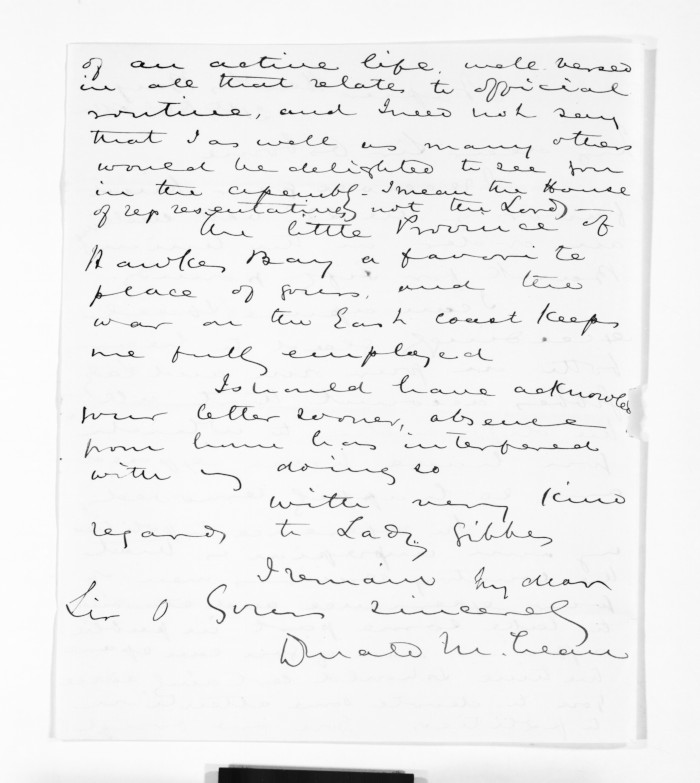 of an active life, well versed
in all that relates to official
routine, and I need not say
that I as well as many others
would be delighted to see you
in the assembly - I mean the House
of representatives not the Lords -
The little Province of
Hawkes Bay a favorite
place of yours, and the
war on the East coast keeps
me fully employed
I should have acknowled
your letter sooner, absence
from home has interfered
with my doing so
with very kind
regards to Lady Gibbes
I remain My dear
Sir O Yours sincerely
Donald McLean